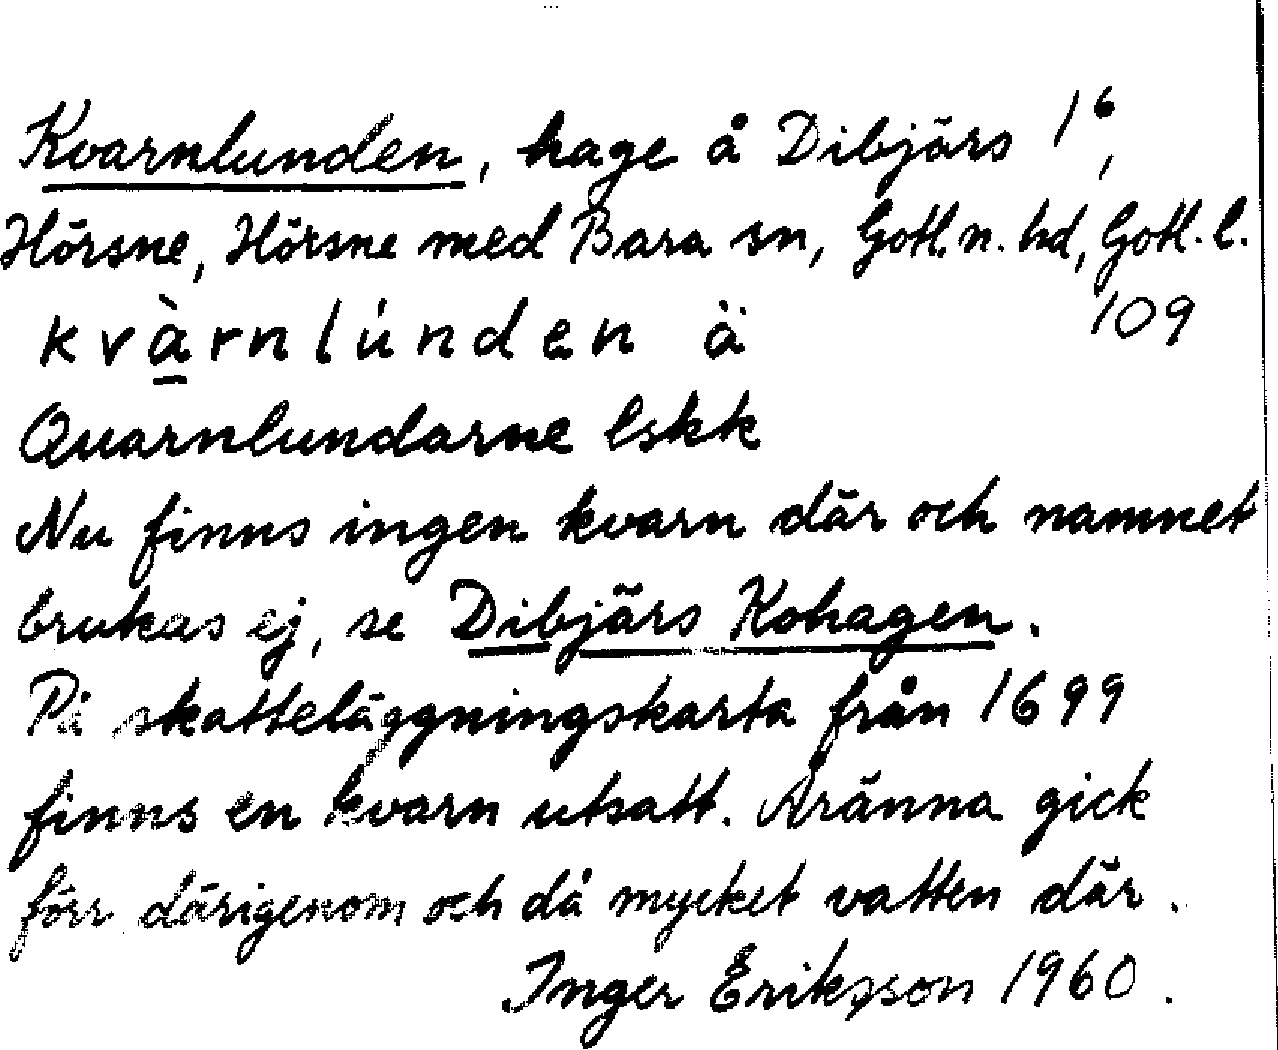 Kvarnlunden, hage å Dibjärs 1⁶,
Hörsne, Hörsne med Bara sn, Gotl. n. hd, Gotl. l.
kvàrnlúnden ä 109
Quarnlundarne lskk
Nu finns ingen kvarn där och namnet
brukas ej, se Dibjärs Kohagen.
På skatteläggningskarta från 1699
finns en kvarn utsatt. Åränna gick
förr därigenom och då mycket vatten där.
Inger Eriksson 1960.